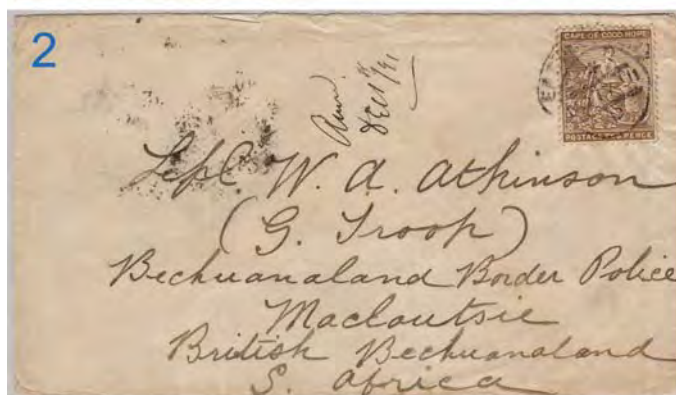 2
CAPE OF GOOD HOPE
POSTAGE PENCE
Dec 1/91
W. A. Atkinson
(G. Troop)
Bechuanaland Border Police
Macloutsie
British Bechuanaland
S. Africa